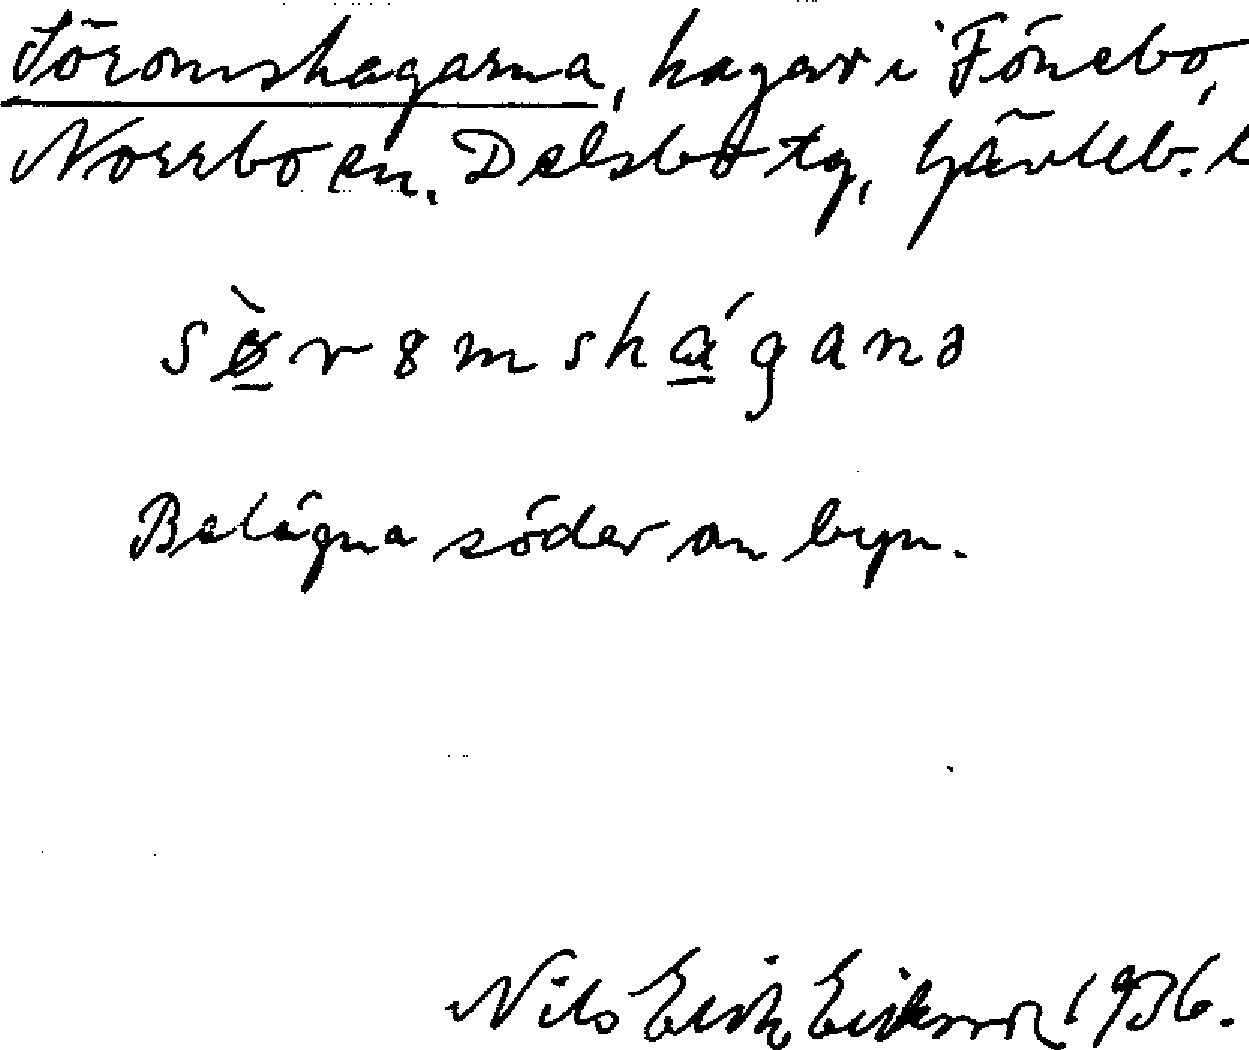 Söromshagarna, hagar i Fönebo,
Norrbo sn. Delsbo tg, Gävleb. l
sø̀r8mshágana
Belägna söder om byn.
Nils Erik Eriksson 1936.